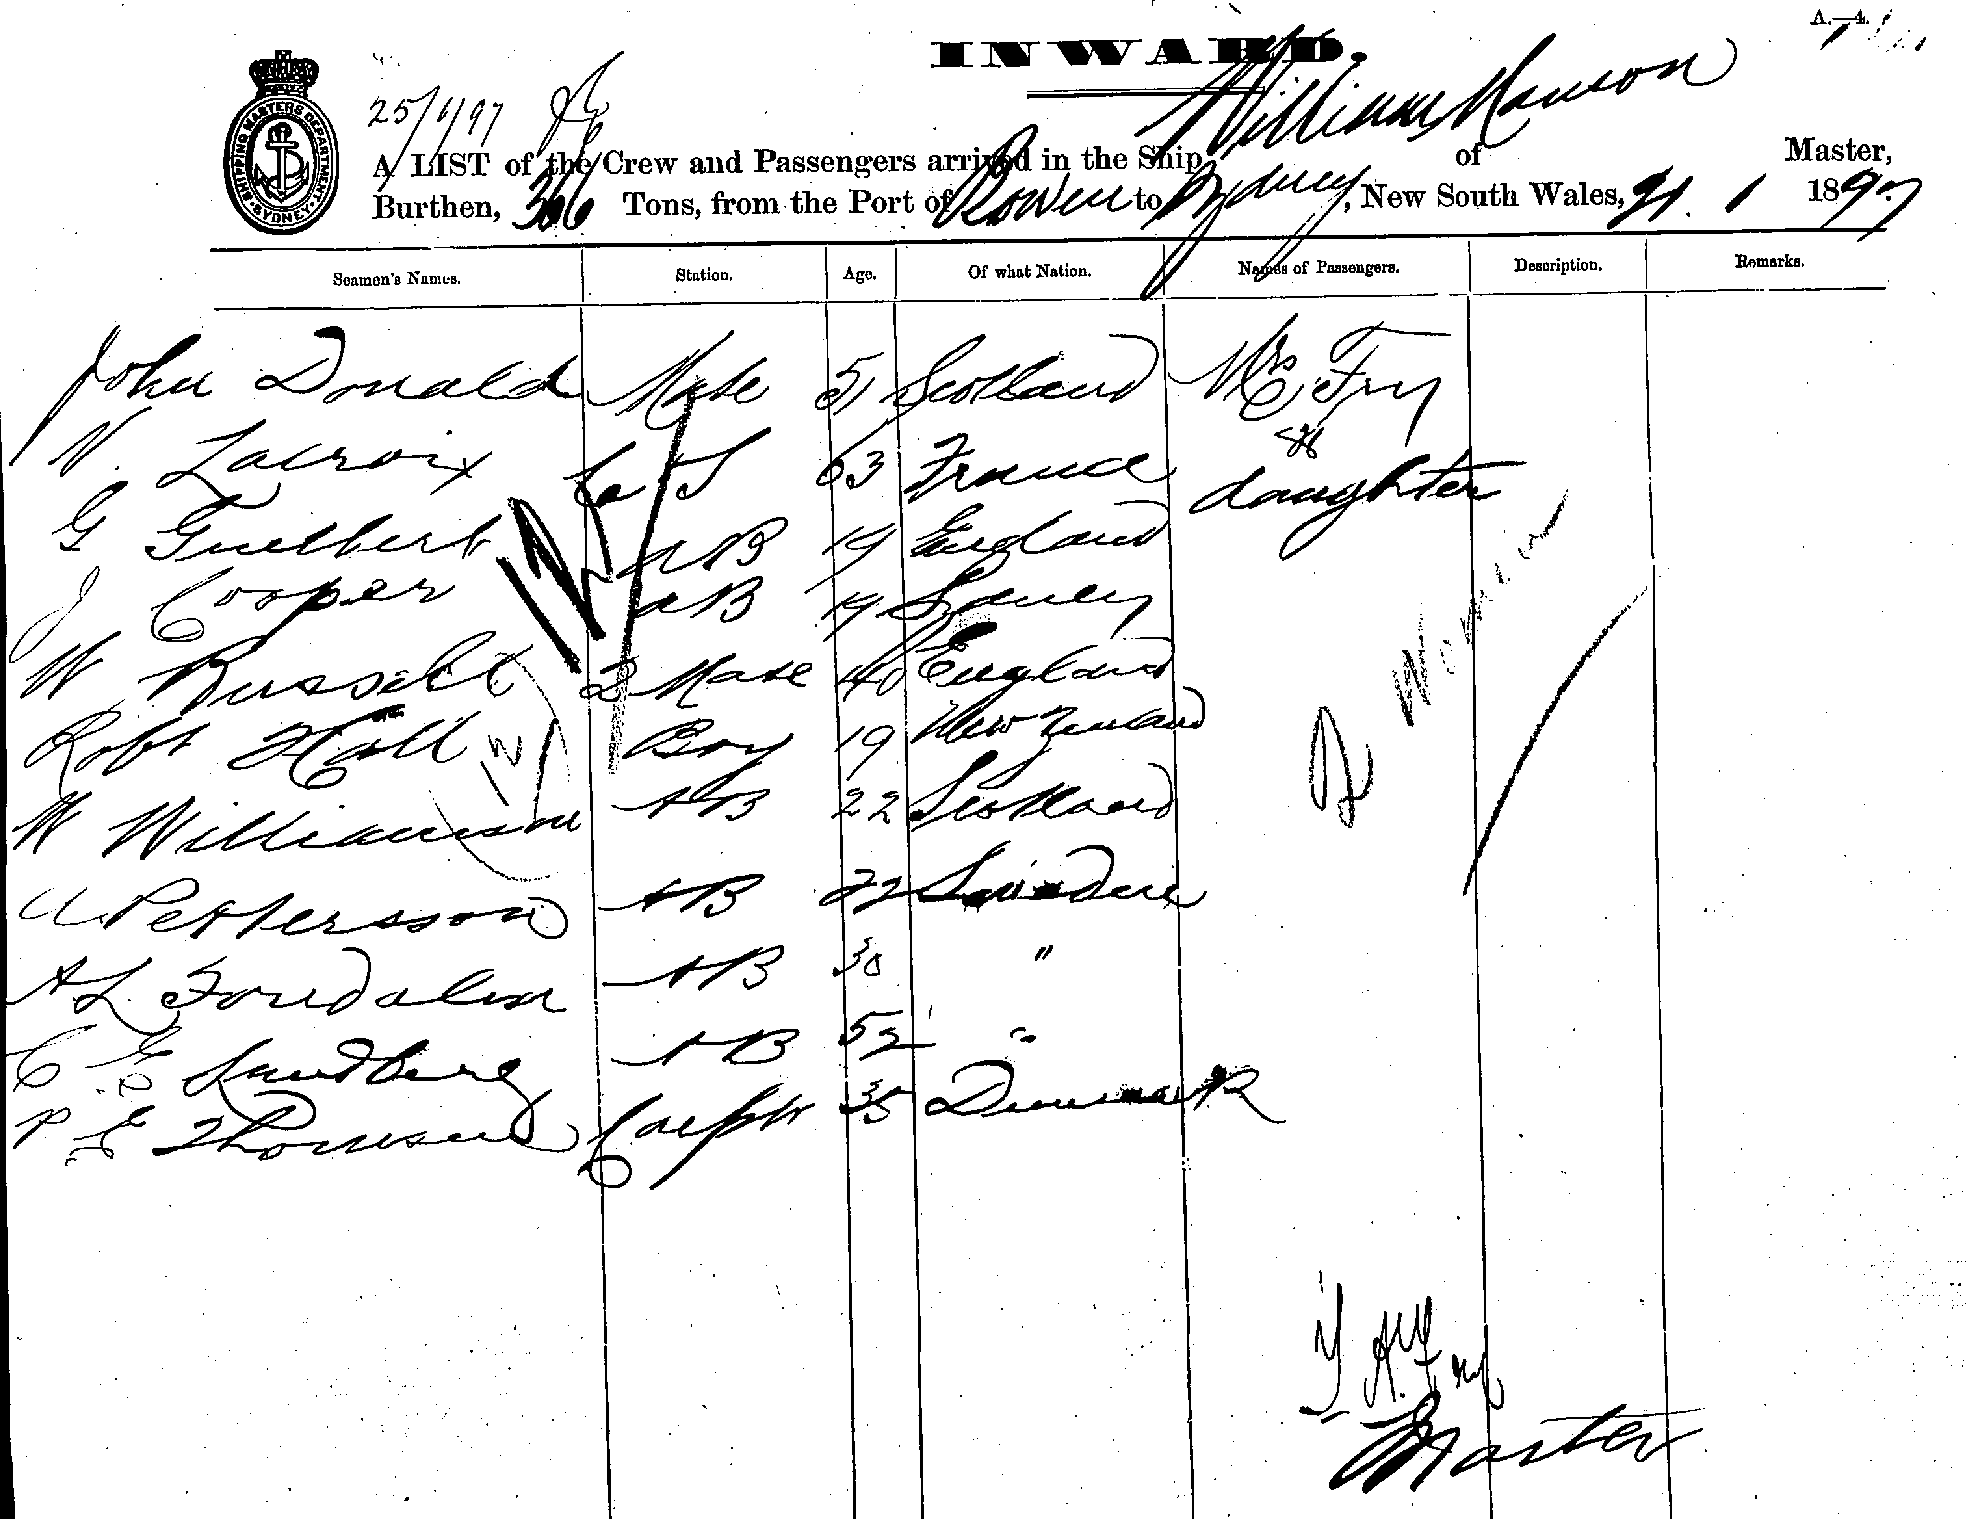 A.—4.
INWARD.
25/1/97
SHIPPING MASTERS DEPARTMENT SYDNEY
A LIST of the Crew and Passengers arrived in the Ship William Manson of Master,
Burthen, 366 Tons, from the Port of Bowen to Sydney, New South Wales, 1 1897
Seamen's Names. Station. Age. Of what Nation. Names of Passengers. Description. Remarks.
John Donald Mate 51 Scotland Mrs Fry
N. Lacroix C & S 63 France &
daughter
G Guelbert AB 19 England
J Cooper AB 19 Sydney
W Russell 2 Mate 40 England
Robt Hall Boy 19 New Zealand
W Williamson AB 22 Scotland
A. Pettersson AB 22 Sweden
A L AB 30 "
C E Sandberg AB 52 "
P E Thomsen Carptr 35 Denmark
12
12
Fry
Master